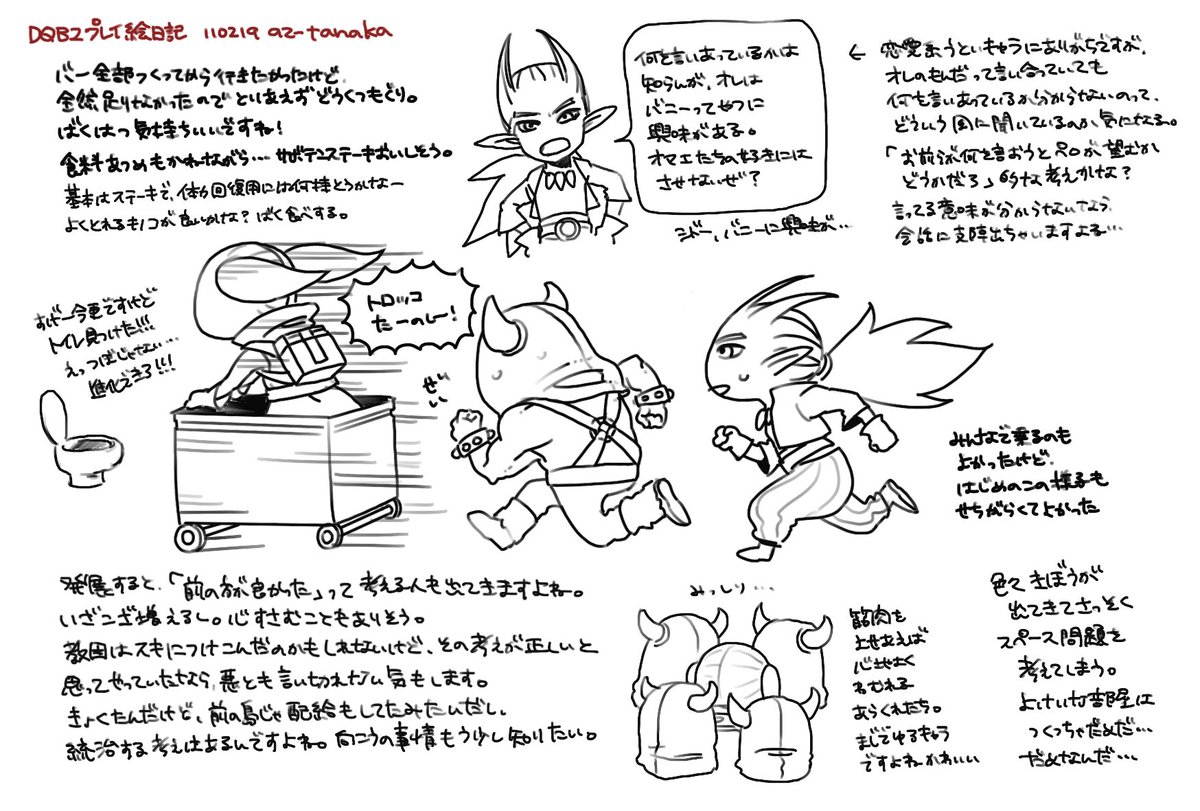 DQB2プレイ絵日記 110219 az-tanaka
バー全部つくってから行きたかったけど、
全然足りなかったのでとりあえずどうくつもぐり。
ばくはつ気持ちいいですね!
食料あつめもかねながら…サボテンステーキおいしそう。
基本はステーキで、体力回復用には何持とうかなー
よくとれるキノコが良いかな?ばく食べする。
何を言いあっているかは
知らんが、オレは
バニーってやつに
興味がある。
オマエたちの好きには
させないぜ?
シドー、バニーに興味が…
← 恋愛にうといキャラにありがちですが、
オレのもんだって言い合っていても
何を言いあっているか分からないのって、
どういう風に聞いているのか気になる。
「お前らが何を言おうとペロが望むか
どうかだろ」的な考えかな?
言ってる意味が分からないなら
会話に支障出ちゃいますよね…
すげー今更ですけど
トイレ見つけた!!!
えっつぼじゃない…
進化できる!!!
トロッコ
たーのしー!
ぜい
ぜい
みんなで乗るのも
よかったけど、
はじめのこの様子も
せちがらくてよかった
発展すると、「前の方が良かった」って考える人も出てきますよねー。
いざこざ増えるし。心すさむこともありそう。
教団はスキにつけこんだのかもしれないけど、その考えが正しいと
思ってやっていたなら、悪とも言い切れない気もします。
きょくたんだけど、前の島じゃ配給もしてたみたいだし、
統治する考えはあるんですよね。向こうの事情もう少し知りたい。
みっしり…
筋肉を
よせあえば
心地よく
ねむれる
あらくれたち。
まじでゆるキャラ
ですよねーかわいい
色々きぼうが
出てきてさっそく
スペース問題を
考えてしまう。
よけいな部屋は
つくっちゃだめだ…
だめなんだ…